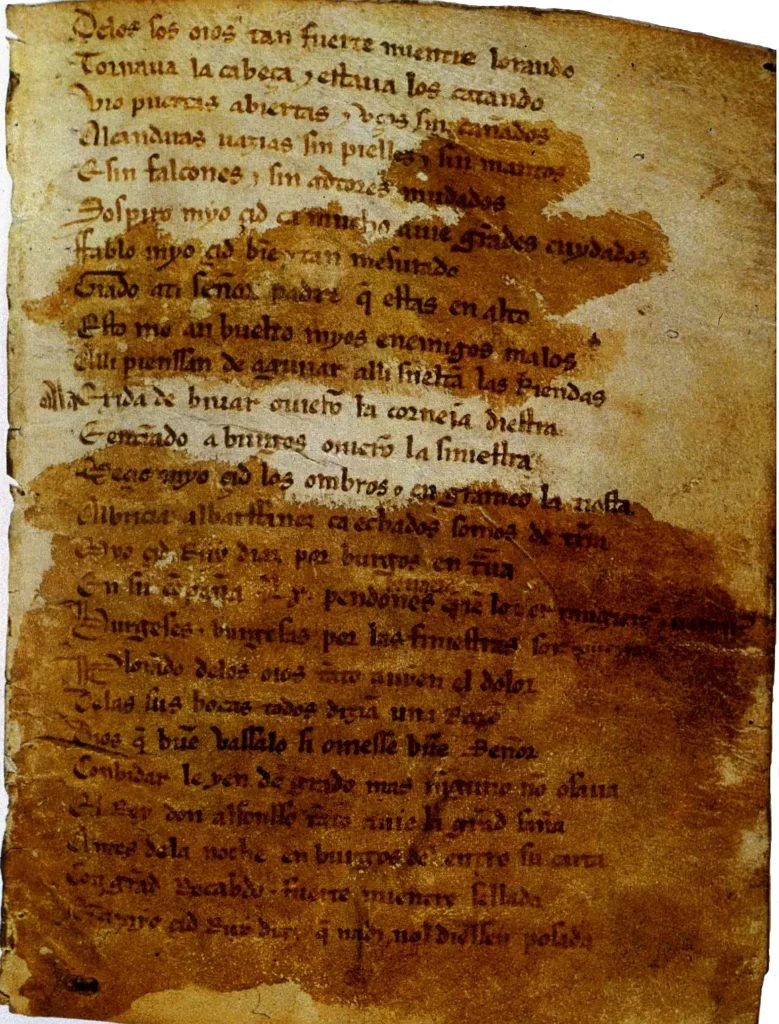 Delos sos oios tan fuerte mientre lorando
Tornaua la cabeça ⁊ estaua los catando
Vio puertas abiertas ⁊ vços sin cañados
Alcandaras uazias sin pielles ⁊ sin mantos
E sin falcones ⁊ sin adtores mudados
Sospiro myo çid ca mucho auie grãdes cuydados
Ffablo myo çid bie ⁊ tan mesurado
Grado ati señor padre q̃ estas en alto
Esto me an buelto myos enemigos malos
Alli pienssan de aguiiar alli sueltã las Riendas
Ala Exida de biuar ouierõ la corneia diestra
E entrãdo a burgos ouierõ la siniestra
Meçio myo çid los ombros ⁊ engrameo la tiesta
Albricia albarffanez ca echados somos de tr̃ra
Myo çid Ruy diaz por burgos en tr̃ua
En su cõpaña .Lx. pendones
Burgeses ⁊ burgesas por las finiestras son
Plorãdo delos oios tãto auyen el dolor
Delas sus bocas todos dizíã una Razõ
Dios q̃ bũe vassalo si ouiesse bũe Señor
Conbidar le yen de grado mas ninguno nõ osaua
El Rey don alfonsso tãto auie la grãd saña
Antes dela noche en burgos del entro su carta
Con grãd Recabdo ⁊ fuerte mientre sellada
çid Ruy diaz q̃ nadi nol diessen posada